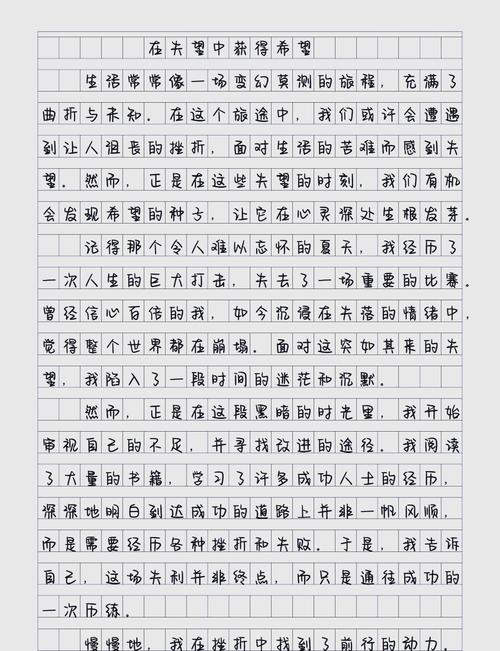 在失望中获得希望
生活常常像一场变幻莫测的旅程，充满了
曲折与未知。在这个旅途中，我们或许会遭遇
到让人沮丧的挫折，面对生活的苦难而感到失
望。然而，正是在这些失望的时刻，我们有机
会发现希望的种子，让它在心灵深处生根发芽。
记得那个令人难以忘怀的夏天，我经历了
一次人生的巨大打击，失去了一场重要的比赛。
曾经信心百倍的我，如今沉浸在失落的情绪中，
觉得整个世界都在崩塌。面对这突如其来的失
望，我陷入了一段时间的迷茫和沉默。
然而，正是在这段黑暗的时光里，我开始
审视自己的不足，并寻找改进的途径。我阅读
了大量的书籍，学习了许多成功人士的经历，
深深地明白到达成功的道路上并非一帆风顺，
而是需要经历各种挫折和失败。于是，我告诉
自己，这场失利并非终点，而只是通往成功的
一次历练。
慢慢地，我在挫折中找到了前行的动力。